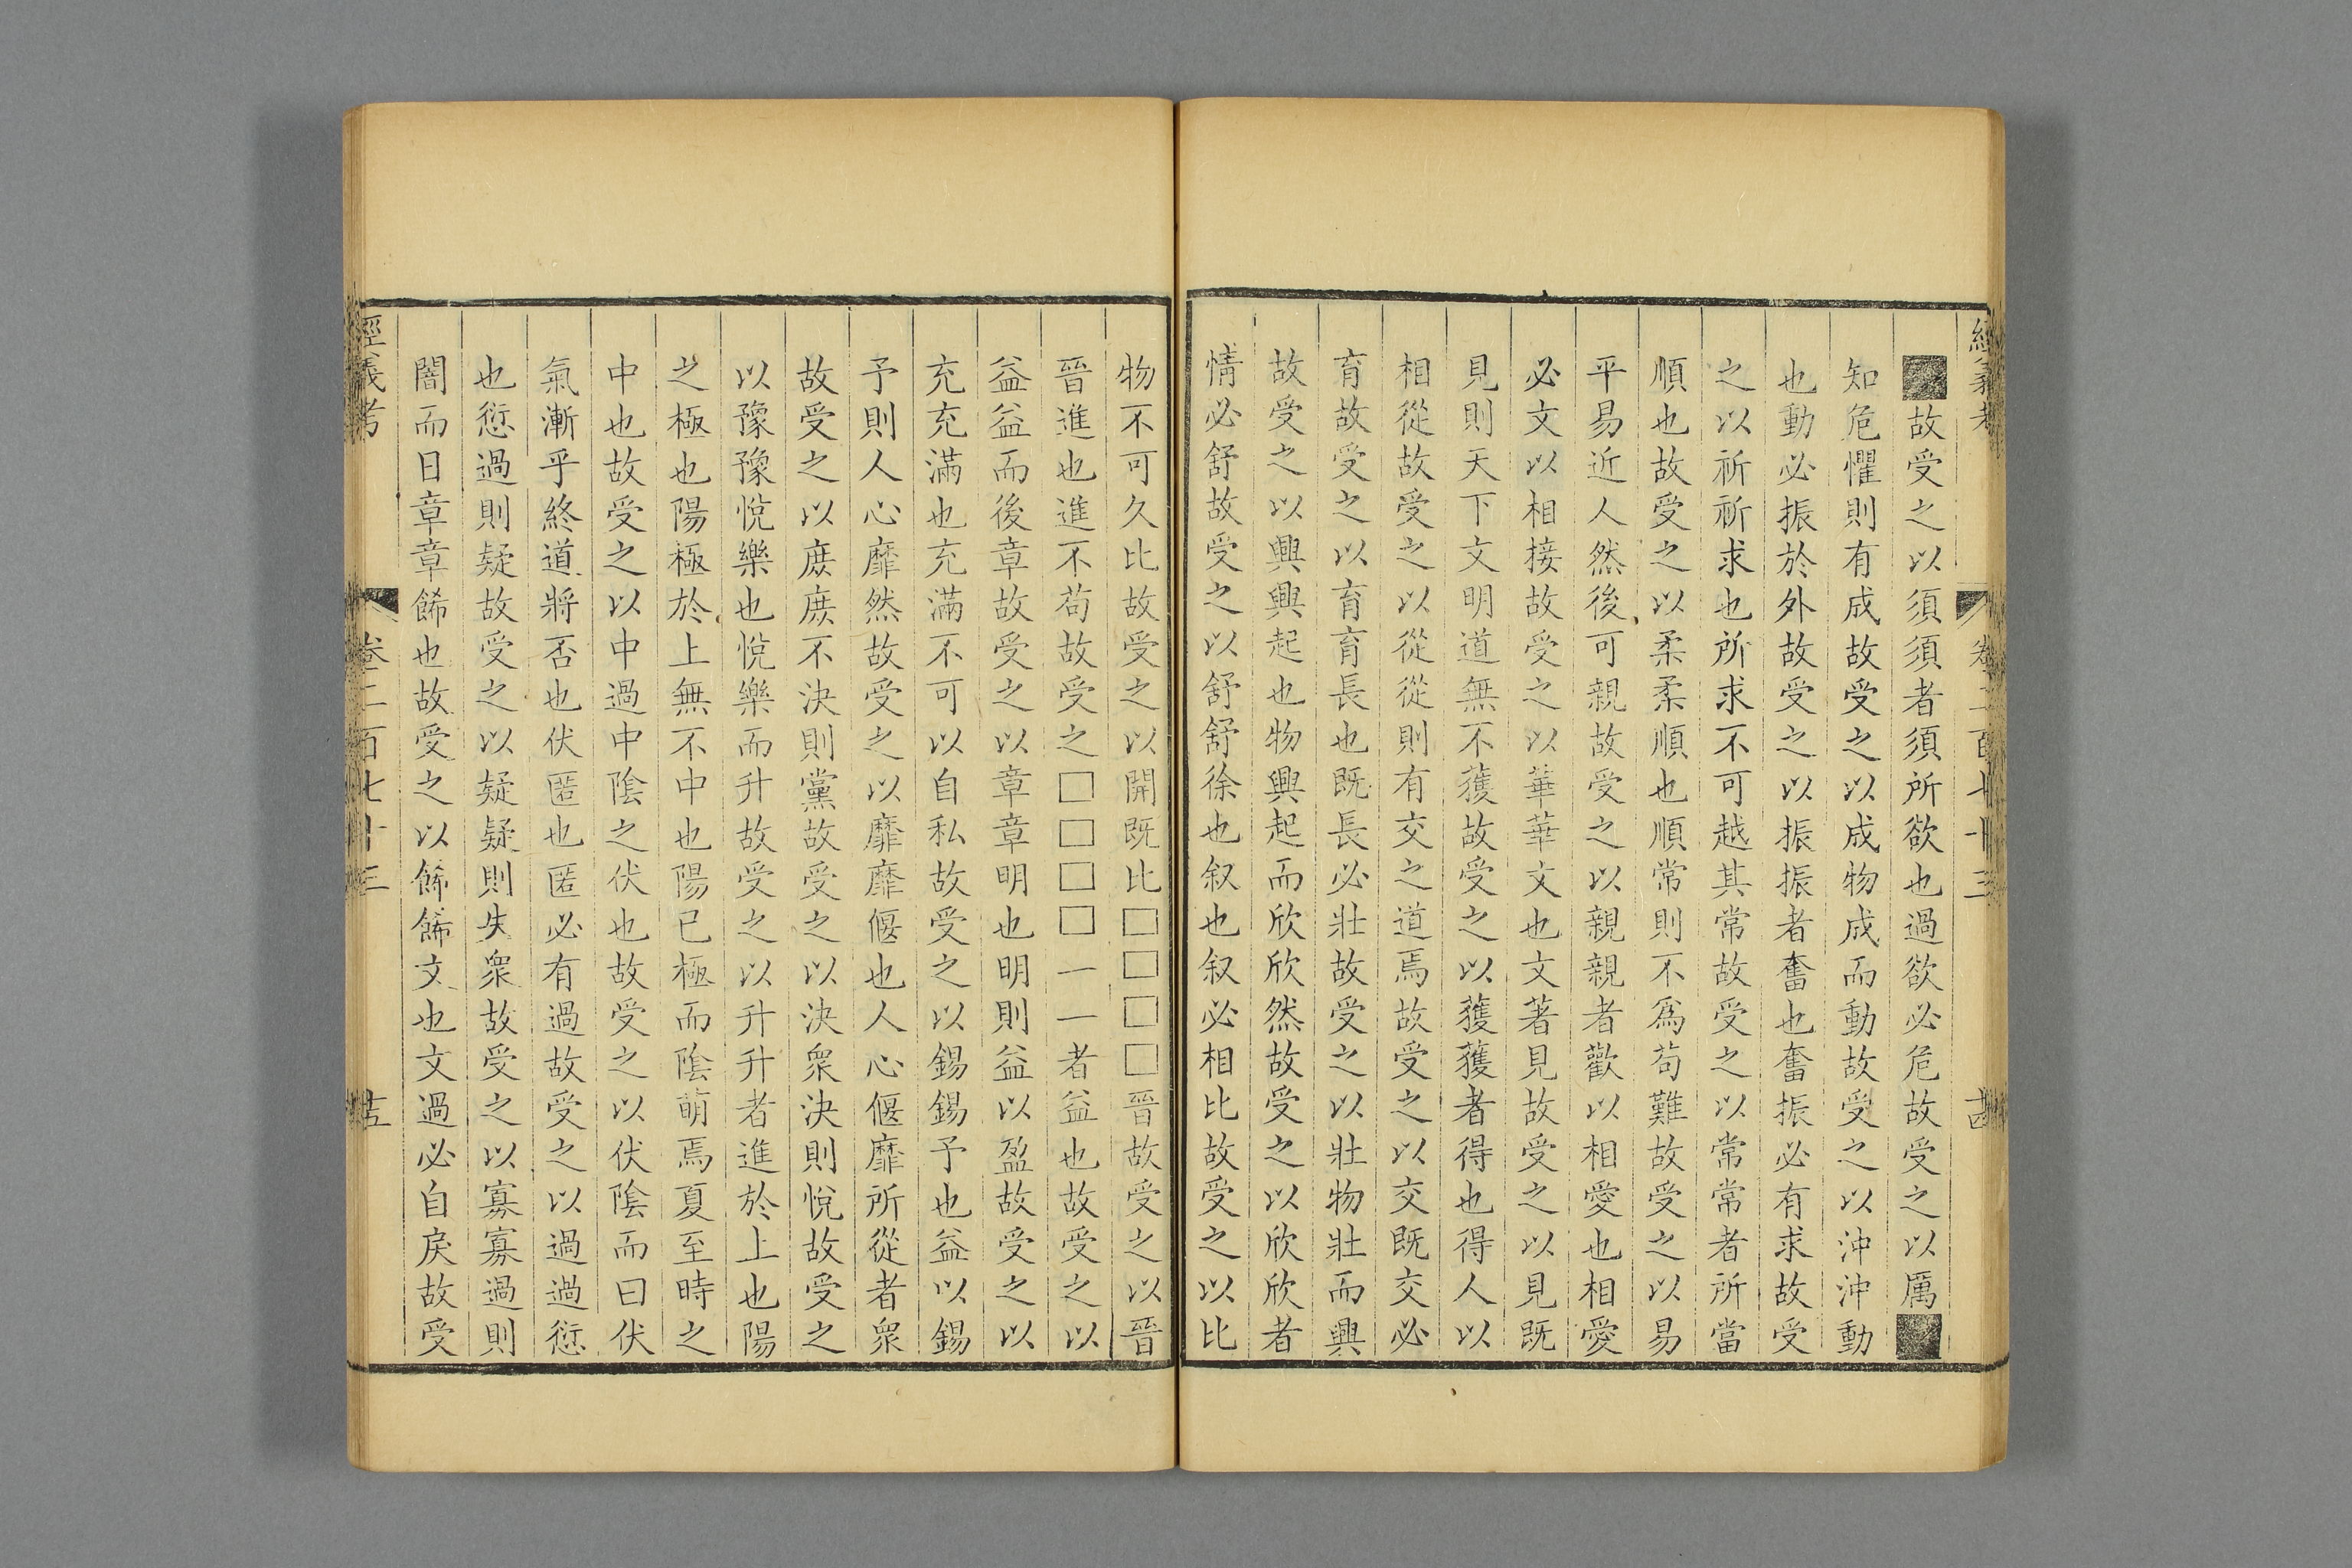 經義考 卷二百七十三 十四
■故受之以須須者須所欲也過欲必危故受之以厲■
知危懼則有成故受之以成物成而動故受之以沖沖動
也動必振於外故受之以振振者奮也奮振必有求故受
之以祈祈求也所求不可越其常故受之以常常者所當
順也故受之以柔柔順也順常則不爲苟難故受之以易
平易近人然後可親故受之以親親者歡以相愛也相愛
必文以相接故受之以華華文也文著見故受之以見既
見則天下文明道無不獲故受之以獲獲者得也得人以
相從故受之以從從則有交之道焉故受之以交既交必
育故受之以育育長也既長必壯故受之以壯物壯而興
故受之以興興起也物興起而欣欣然故受之以欣欣者
情必舒故受之以舒舒徐也叙也叙必相比故受之以比
物不可久比故受之以開既比□□□□晉故受之以晉
晉進也進不苟故受之□□□□一一者益也故受之以
益益而後章故受之以章章明也明則益以盈故受之以
充充滿也充滿不可以自私故受之以錫錫予也益以錫
予則人心靡然故受之以靡靡偃也人心偃靡所從者衆
故受之以庶庶不決則黨故受之以決衆決則悅故受之
以豫豫悅樂也悅樂而升故受之以升升者進於上也陽
之極也陽極於上無不中也陽已極而陰萌焉夏至時之
中也故受之以中過中陰之伏也故受之以伏陰而曰伏
氣漸乎終道將否也伏匿也匿必有過故受之以過過愆
也愆過則疑故受之以疑疑則失衆故受之以寡寡過則
闇而日章章飾也故受之以飾飾文也文過必自戾故受
經義考 卷二百七十三 十五